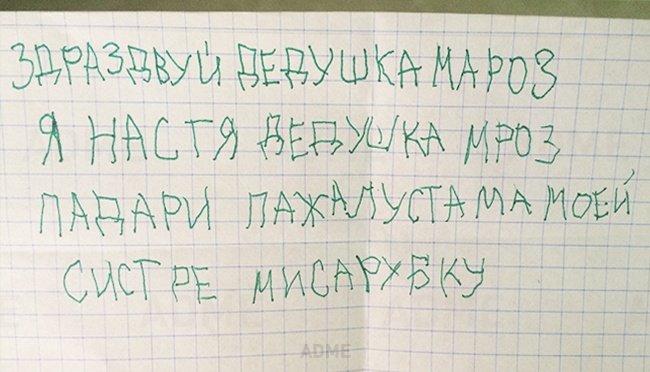 ЗДРАЗДВУЙ ДЕДУШКА МАРОЗ
Я НАСТЯ ДЕДУШКА МРОЗ
ПАДАРИ ПАЖАЛУСТАМА МОЕЙ
СИСТРЕ МИСАРУБКУ
ADME